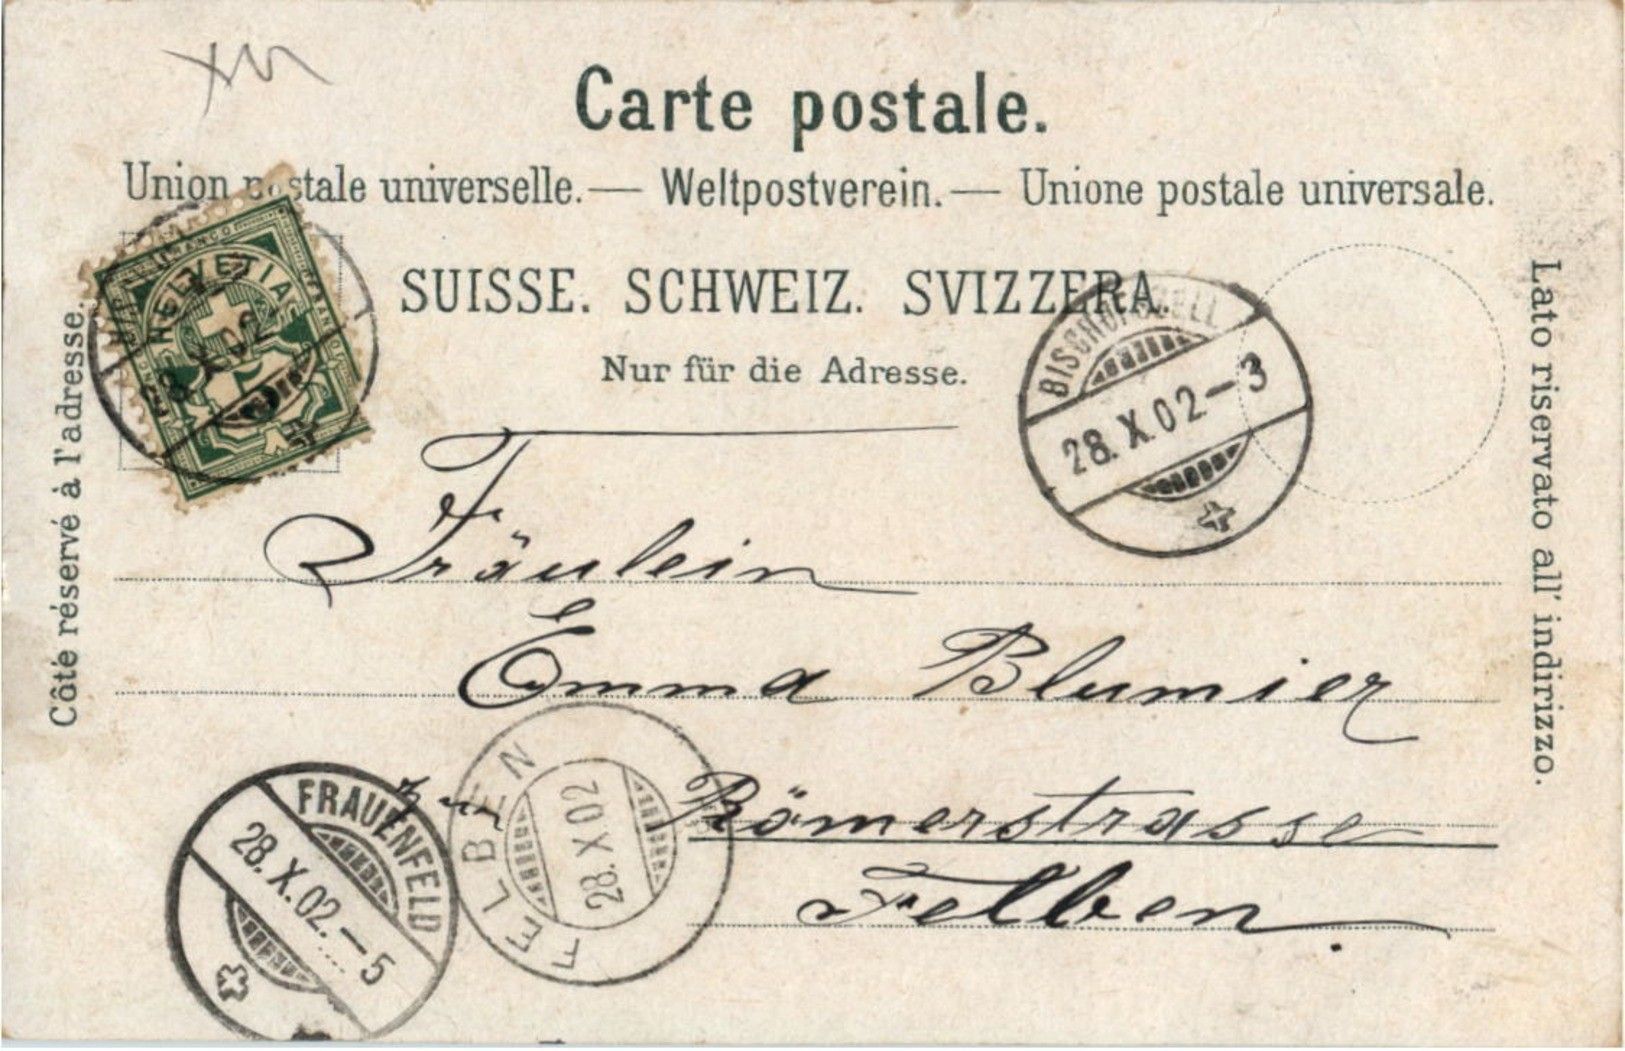 Carte postale.
Union postale universelle. — Weltpostverein. — Unione postale universale.
SUISSE. SCHWEIZ. SVIZZERA.
Nur für die Adresse.
Côté réservé à l'adresse.
Lato riservato all' indirizzo.
FRANCO
HELVETIA
28.X.02
BISCHOFSZELL
28.X.02-3
Fräulein
Emma Blumier
zur Römerstrasse
Felben.
FRAUENFELD
28.X.02.-5
FELBEN
28.X.02